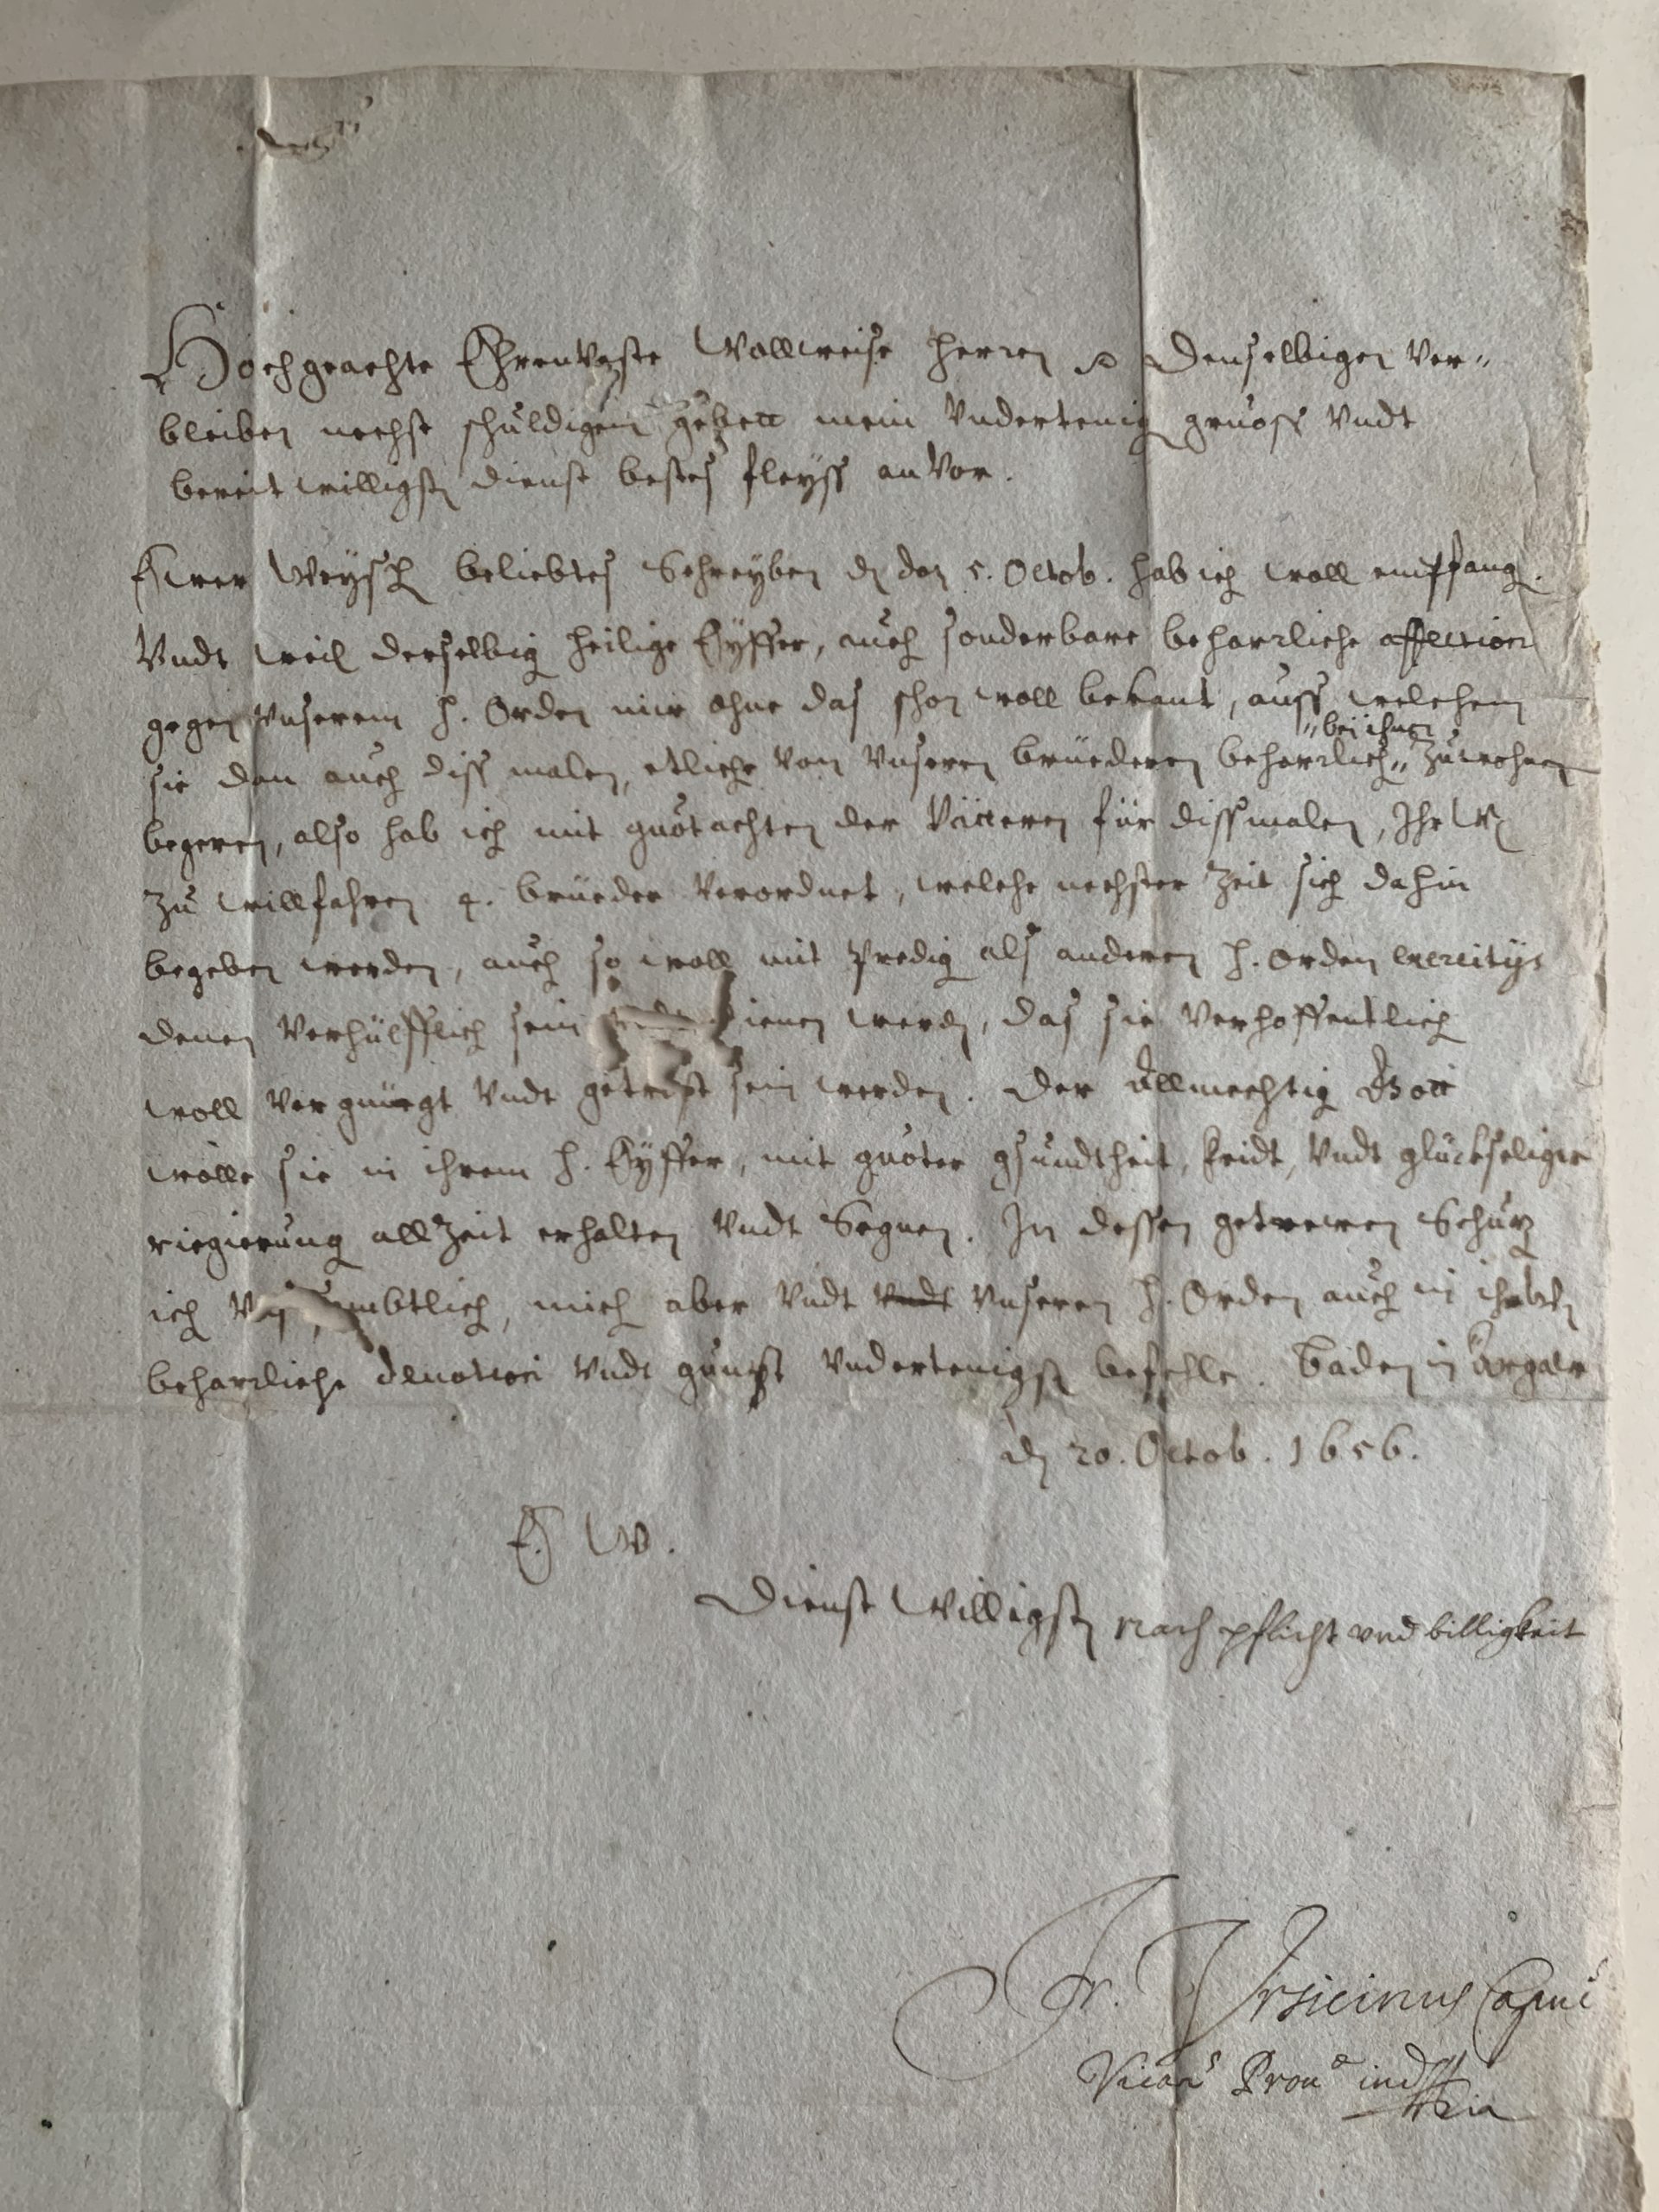 Hochgeachte Ehrenveste Wollweise herren Denselbigen ver„
bleiben nechst schuldigem gebett mein vndertenig gruoss vndt
bereit willigst dienst bestes fleyss an vor.
Ewer Weysh beliebtes Schreyben dz den 5. Octob. hab ich woll empfang.
Vndt weil derselbig heilige Eyffer, auch sonderbare beharrliche affection
gegen vnserem H. Orden mir ohne das schon woll bekant, auss welchem
„bei ihnen
sie dan auch diss malen, etliche von vnseren brüederen beharrlich„ zuwohnen
begeren, also hab ich mit guotachten der Vätteren für dissmalen, Ihr W
zu willfahren 4. brüeder verordnet, welche nechster zeit sich dahin
begeben werden, auch so woll mit predig als anderen H. orden exercitijs
denen verhülfflich sein dienen werdn, das sie verhoffentlich
woll vergnüegt vndt getröst sein werden. Der Allmechtig Gott
wölle sie in ihrem H. Eyffer, mit guoter gsundtheit, fridt, vndt glückseliger
riegierung allzeit erhalten vndt Segnen. In dessen getrewen Schutz
ich vns mbtlich, mich aber vndt vndt vnseren H. Orden auch in
beharrliche deuotion vndt gunst vndertenigst befehlle. Baden in Ärgaw
dn 20. Octob. 1656.
E W.
Dienst Willigst nach pflicht vnd billigkeit
Fr. Vrsicinus Capuc
Vicars Prou